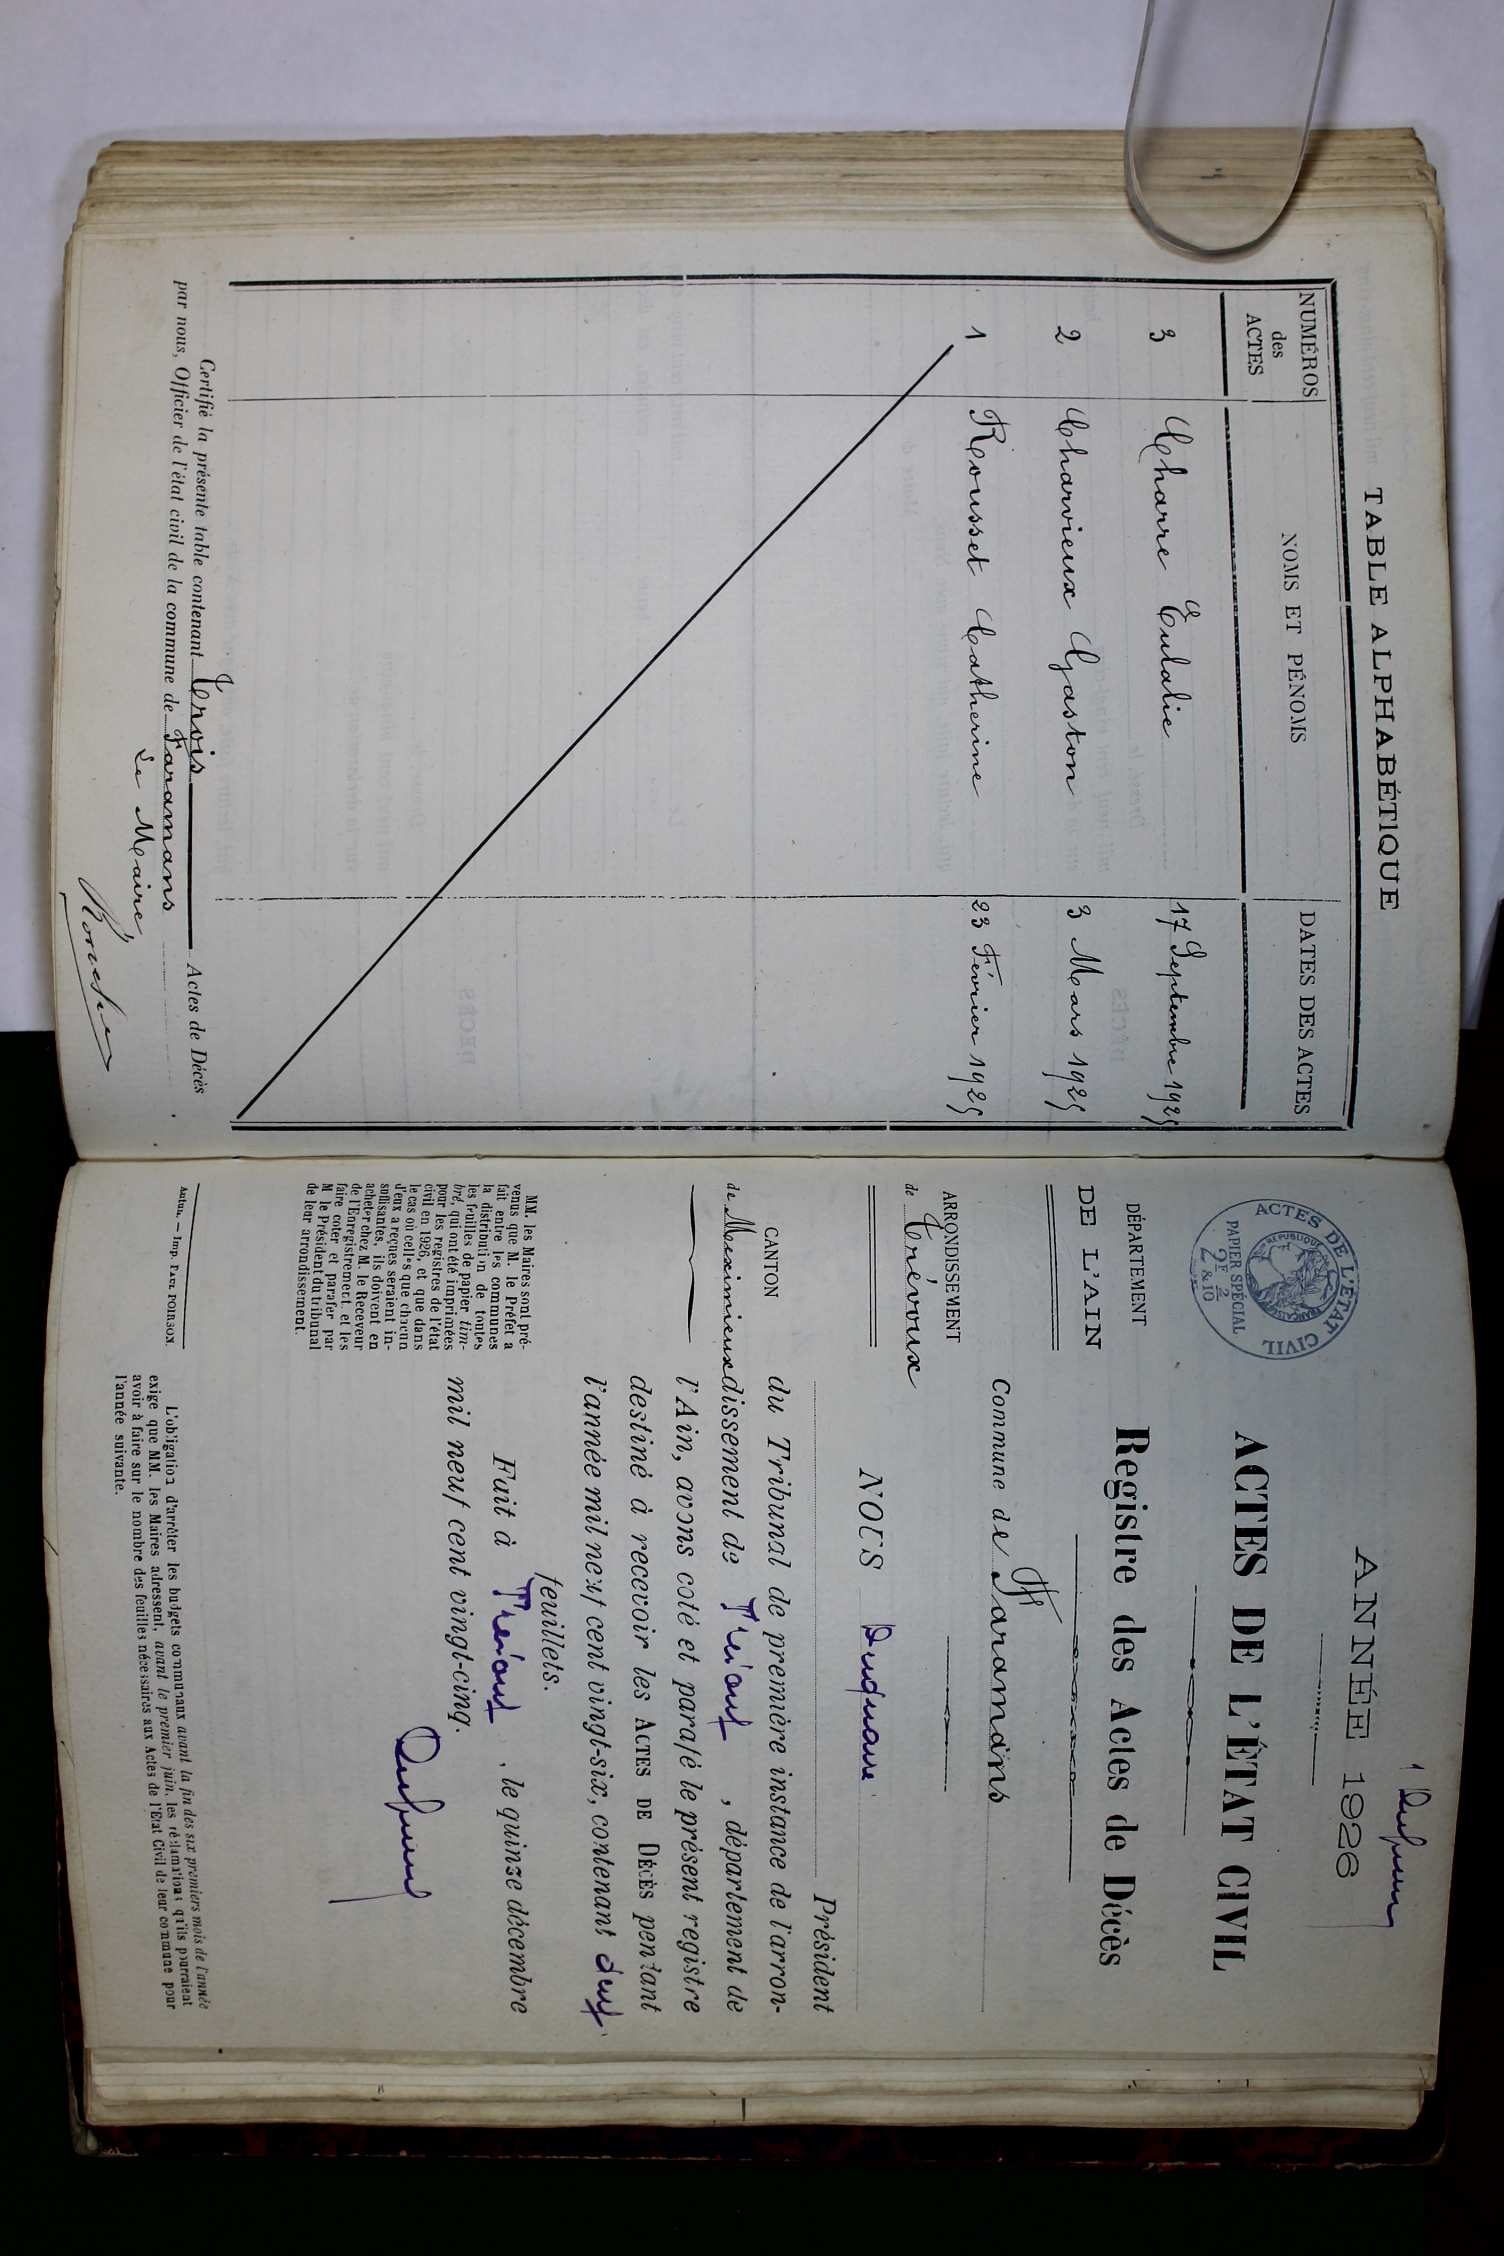 TABLE ALPHABÉTIQUE
NUMÉROS des ACTES
NOMS ET PÉNOMS
DATES DES ACTES
3 Charre Eulalie 17 Septembre 1925
2 Charvieux Gaston 3 Mars 1925
1 Rousset Catherine 23 Février 1925
Certifié la présente table contenant trois Actes de Décès
par nous, Officier de l'état civil de la commune de Faramans
Le Maire
ANNÉE 1926
ACTES DE L'ÉTAT CIVIL
PAPIER SPÉCIAL
2F &2/10
RÉPUBLIQUE FRANÇAISE
DÉPARTEMENT
DE L'AIN
ARRONDISSEMENT
de Trévoux
CANTON
de Meximieux
MM. les Maires sont pré-
venus que M. le Préfet a
fait entre les communes
la distribution de toutes
les feuilles de papier tim-
bré, qui ont été imprimées
pour les registres de l'état
civil en 1926, et que dans
le cas où celles que chacun
d'eux a reçues seraient in-
suffisantes, ils doivent en
acheter chez M. le Receveur
de l'Enregistrement et les
faire coter et parafer par
M le Président du tribunal
de leur arrondissement.
Autun. — Imp. PAUL POIRSON.
ACTES DE L'ÉTAT CIVIL
Registre des Actes de Décès
Commune de Faramans
NOUS
Président
du Tribunal de première instance de l'arron-
dissement de Trévoux, département de
l'Ain, avons coté et parafé le présent registre
destiné à recevoir les ACTES DE DÉCÈS pendant
l'année mil neuf cent vingt-six, contenant deux
feuillets.
Fait à Trévoux, le quinze décembre
mil neuf cent vingt-cinq.
L'obligation d'arrêter les budgets communaux avant la fin des six premiers mois de l'année
exige que MM. les Maires adressent, avant le premier juin, les réclamations qu'ils pourraient
avoir à faire sur le nombre des feuilles nécessaires aux Actes de l'Etat Civil de leur commune pour
l'année suivante.